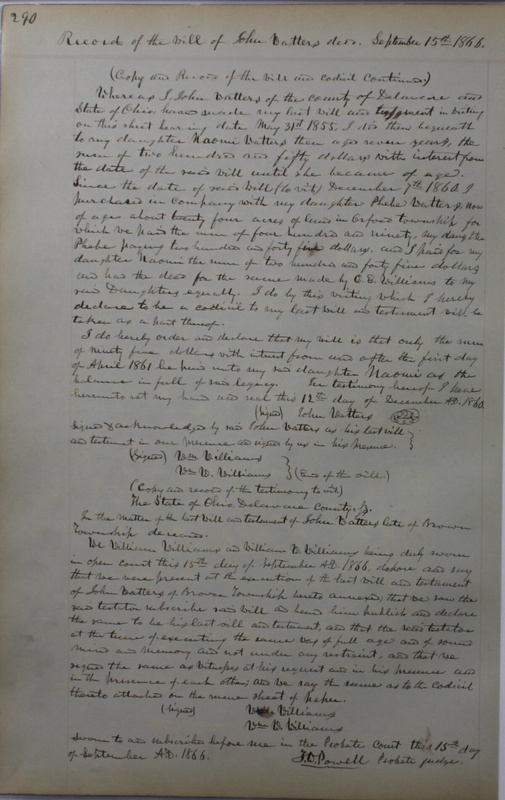 290
Record of the Will of John Vatters decd. September 15th 1866.
(Copy and Record of the Will and codicil Continued)
Whereas I, John Vatters of the County of Delaware and
State of Ohio have made my last Will and testament in writing
on this sheet bearing date May 31st 1855. I do then bequeath
to my daughter Naomi Vatters then aged seven years, the
sum of two hundred and fifty dollars with interest from
the date of the said Will until she became of age.
Since the date of said Will (to wit) December 7th 1860 I
purchased in Company with my daughter Phebe Vatters, now
of age about twenty four acres of land in Orford township for
which we paid the sum of four hundred and ninety, my daughter
Phebe paying two hundred and forty five dollars, and I paid for my
daughter Naomi the sum of two hundred and forty five dollars
and had the deed for the same made by C. C. Williams to my
said Daughters equally. I do by this writing which I hereby
declare to be a codicil to my last will and testament will be
taken as a part thereof.
I do hereby order and declare that my will is that only the sum
of ninety five dollars with intrest from and after the first day
of April 1861 be paid unto my said daughter Naomi as the
balance in full of said legacy. In testimony hereof I have
hereunto set my hand and seal this 12th day of December A.D. 1860.
(Signed) John Vatters
Signed & acknowledged by said John Vatters as his last will
and testament in our presence and signed by us in his presence.
(Signed) Wm Williams
Wm W. Williams (End of the Will)
(Copy and record of the testimony to wit)
The State of Ohio Delaware County, ss.
In the matter of the last Will and testament of John Vatters late of Brown
Township deceased.
We William Williams and William W. Williams being duly sworn
in open court this 15th day of September A.D. 1866. depose and say
that we were present at the execution of the last will and testament
of John Vatters of Brown Township hereto annexed, that we saw the
said testator subscribe said Will and heard him publish and declare
the same to be his last will and testament, and that the said testator
at the time of executing the same was of full age and of sound
mind and memory and not under any restraint, and that we
signed the same as witnesses at his request and in his presence and
in the presence of each other; and we say the same as to the Codicil
thereto attached on the same sheet of paper.
(Signed) Wm Williams
Wm W. Williams
Sworn to and subscribed before me in the Probate Court this 15th day
of September A.D. 1866. T. W. Powell Probate judge.